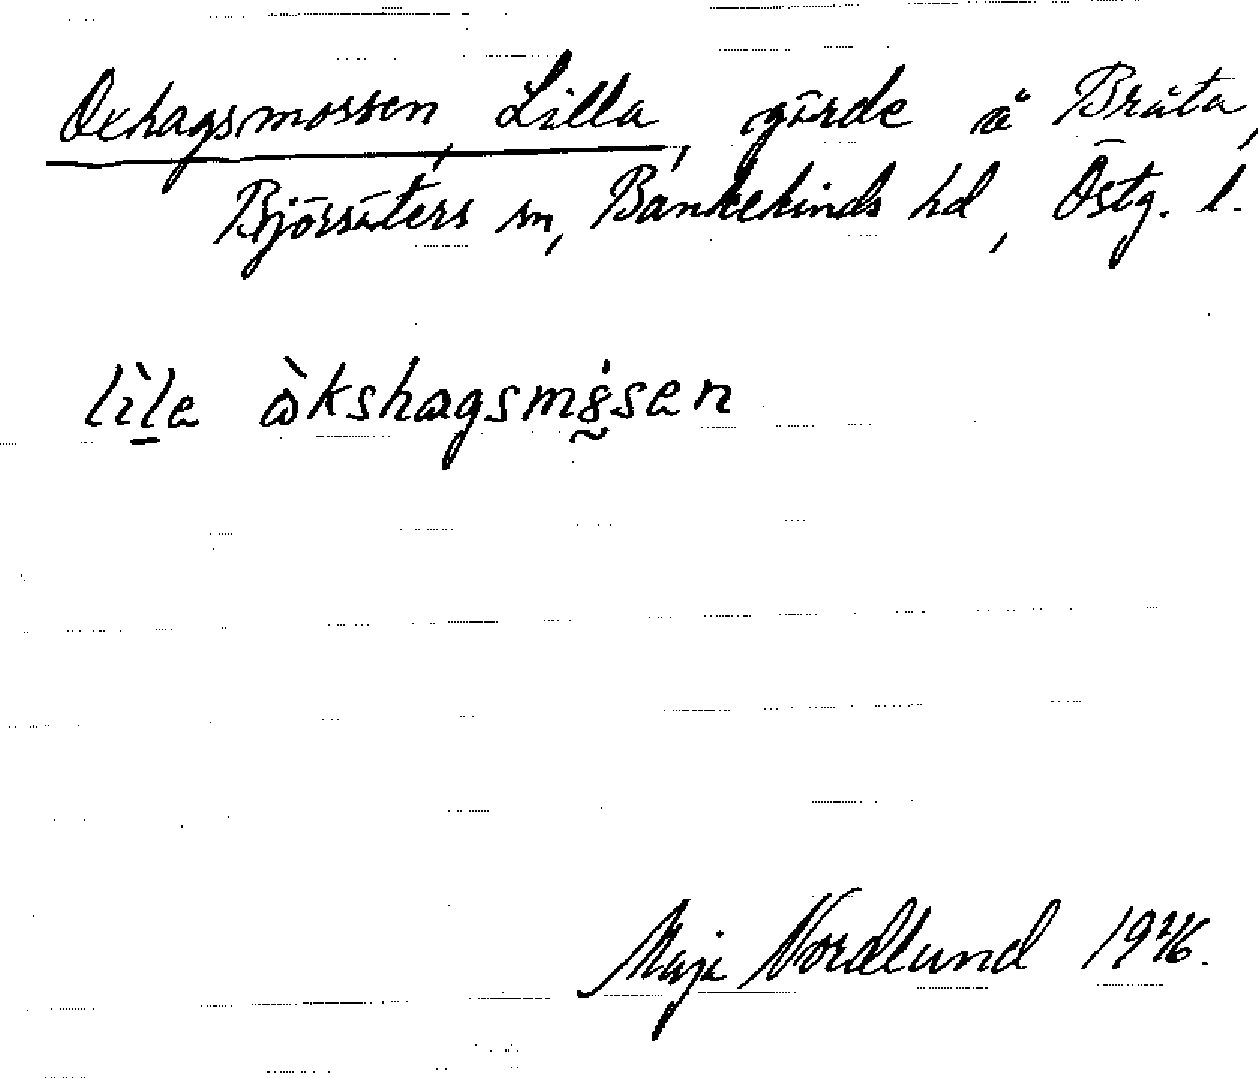 Oxhagsmossen, Lilla, gärde å Bråta,
Björsäters sn, Bankekinds hd, Östg. l.
lìl̠e òkshagsmȯ̰sen
Maja Nordlund 1946.